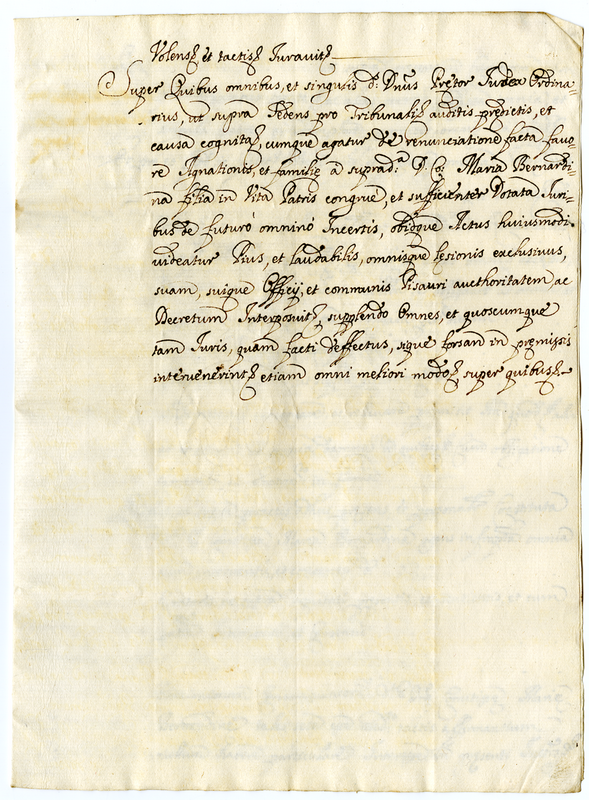 Volens et tactis Iuravit
Super Quibus omnibus, et singulis d.s Dnus Pretor Iudex Ordina-
rius, ut supra Sedens pro Tribunali, auditis predictis, et
causa cognita, cumque agatur de renunciatione facta favo
re Agnationis, et familie a suprad.a D. Co: Maria Bernardi-
na filia in Vita Patris congrue, et sufficienter Dotata Iuri-
bus de futuro omnino Incertis, obidque Actus huiusmodi
videatur Pius, et laudabilis, omnisque lesionis exclusivus,
suam, suique Officij, et communis Pisauri aucthoritatem ac
Decretum Interposuit, supplendo Omnes, et quoscumque
tam Iuris, quam facti deffectus, sique forsan in premissis
intervenerint, etiam omni meliori modo, super quibus